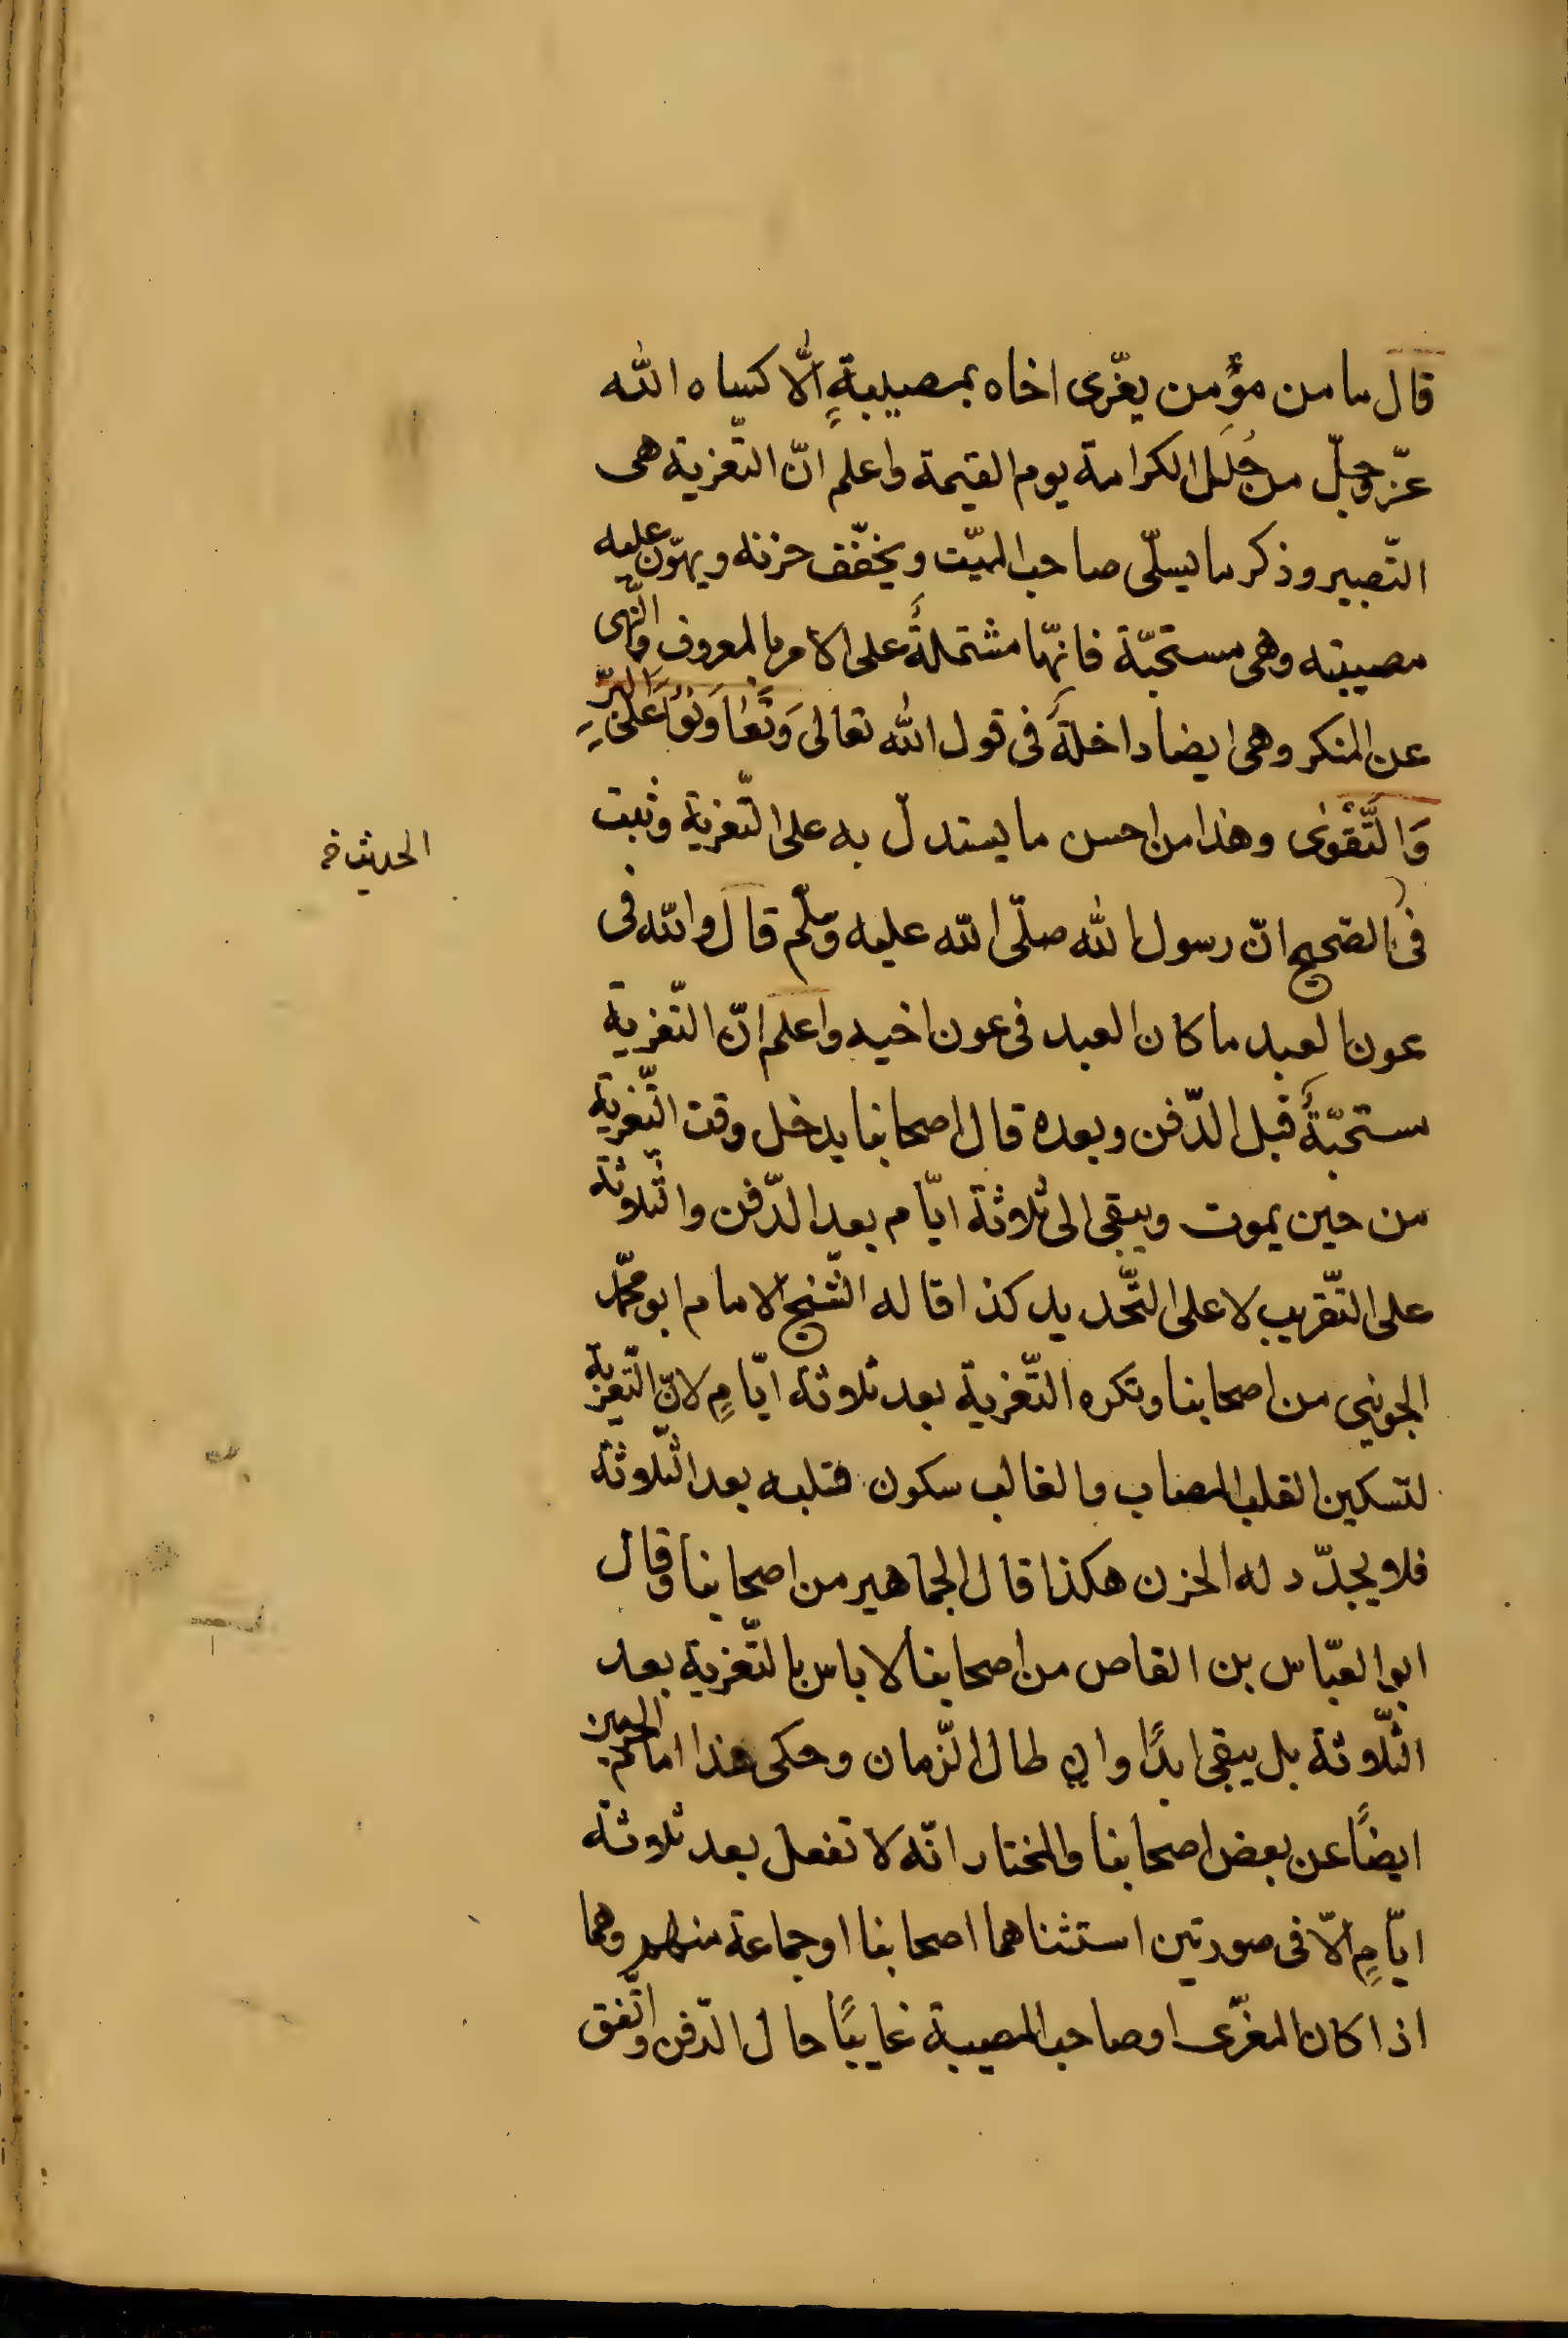 قال ما من مؤمن يعزّى اخاه بمصيبةٍ الّا كساه الله
عزّ وجلّ من حُلَل الكرامة يوم القيمة واعلم انّ التّعزية هى
التّصبير وذكر ما يسلّى صاحب الميّت ويخفّف حزنه ويهوّن عليه
مصيبته وهى مستحبّة فانّها مشتملةٌ على الامر بالمعروف والنّهى
عن المنكر وهى ايضا داخلةٌ فى قول الله تعالى وَتَعَاوَنُوا عَلَى البِرِّ
وَالتَّقْوٰى وهذا من احسن ما يستدلّ به على التّعزية وثبت
فى الصّحيح انّ رسول الله صلّى الله عليه وسلّم قال والله فى
عون العبد ما كان العبد فى عون اخيه واعلم انّ التّعزية
مستحبّةٌ قبل الدّفن وبعده قال اصحابنا يدخل وقت التّعزية
من حين يموت ويبقى الى ثلاثة ايّام بعد الدّفن والثّلاثة
على التّقريب لا على التّحديد كذا قاله الشّيخ الامام ابو محمّد
الجوينى من اصحابنا وتكره التّعزية بعد ثلاثة ايّامٍ لانّ التّعزية
لتسكين القلب المصاب والغالب سكون قلبه بعد الثّلاثة
فلا يجدّد له الحزن هكذا قال الجماهير من اصحابنا وقال
ابو العبّاس بن القاص من اصحابنا لا باس بالتّعزية بعد
الثّلاثة بل يبقى ابدًا وان طال الزّمان وحكى هذا امام الحرمين
ايضًا عن بعض اصحابنا والمختار انّه لا تفعل بعد ثلاثة
ايّامٍ الّا فى صورتين استثناهما اصحابنا او جماعة منهم وهما
اذا كان المعزّى او صاحب المصيبة غايبًا حال الدّفن واتّفق
الحديث